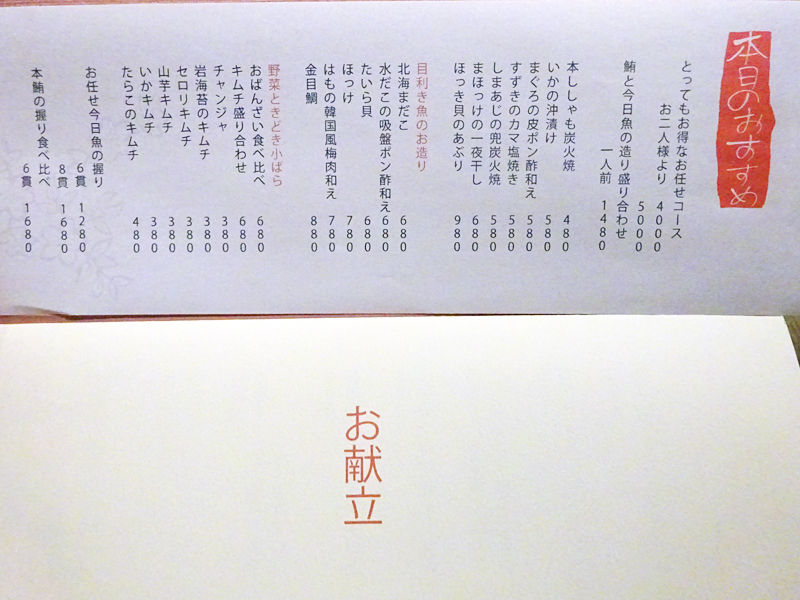 本日のおすすめ
とってもお得なお任せコース
お二人様より 4000
5000
鮪と今日魚の造り盛り合わせ
一人前 1480
本ししゃも炭火焼 480
いかの沖漬け 580
まぐろの皮ポン酢和え 580
すずきのカマ塩焼き 580
しまあじの兜炭火焼 580
まほっけの一夜干し 680
ほっき貝のあぶり 980
目利き魚のお造り
北海まだこ 680
水だこの吸盤ポン酢和え 680
たいら貝 680
ほっけ 780
はもの韓国風梅肉和え 780
金目鯛 880
野菜ときどき小ばら
おばんざい食べ比べ 680
キムチ盛り合わせ 680
チャンジャ 380
岩海苔のキムチ 380
セロリキムチ 380
山芋キムチ 380
いかキムチ 380
たらこのキムチ 480
お任せ今日魚の握り
6貫 1280
8貫 1680
本鮪の握り食べ比べ
6貫 1680
お献立